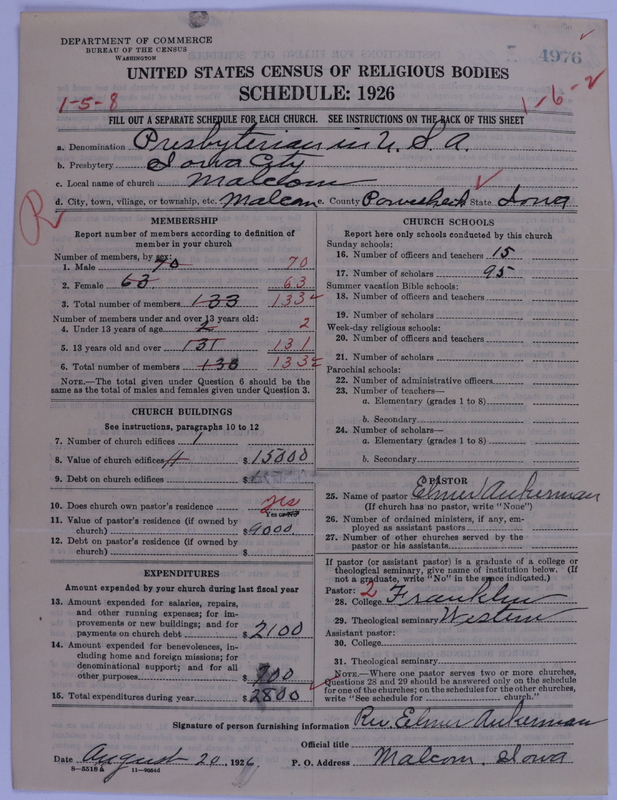 DEPARTMENT OF COMMERCE
BUREAU OF THE CENSUS
WASHINGTON
4976
UNITED STATES CENSUS OF RELIGIOUS BODIES
SCHEDULE: 1926
1-5-8
1-6-2
FILL OUT A SEPARATE SCHEDULE FOR EACH CHURCH. SEE INSTRUCTIONS ON THE BACK OF THIS SHEET
a. Denomination Presbyterian in U. S. A.
b. Presbytery Iowa City
c. Local name of church Malcom
d. City, town, village, or township, etc. Malcom e. County Poweshiek State Iowa
R
MEMBERSHIP
Report number of members according to definition of
member in your church
Number of members, by sex:
1. Male 70 70
2. Female 63 63
3. Total number of members 133 133
Number of members under and over 13 years old:
4. Under 13 years of age 2 2
5. 13 years old and over 131 131
6. Total number of members 133 133
NOTE.—The total given under Question 6 should be
same as the total of males and females given under Question 3.
CHURCH BUILDINGS
See instructions, paragraphs 10 to 12
7. Number of church edifices 1
8. Value of church edifices $ 15000
9. Debt on church edifices $
10. Does church own pastor's residence yes
Yes or No
11. Value of pastor's residence (if owned by
church) $ 9000
12. Debt on pastor's residence (if owned by
church) $
EXPENDITURES
Amount expended by your church during last fiscal year
13. Amount expended for salaries, repairs,
and other running expenses; for im-
provements or new buildings; and for
payments on church debt $ 2100
14. Amount expended for benevolences, in-
cluding home and foreign missions; for
denominational support; and for all
other purposes $ 700
15. Total expenditures during year $ 2800
CHURCH SCHOOLS
Report here only schools conducted by this church
Sunday schools:
16. Number of officers and teachers 15
17. Number of scholars 95
Summer vacation Bible schools:
18. Number of officers and teachers
19. Number of scholars
Week-day religious schools:
20. Number of officers and teachers
21. Number of scholars
Parochial schools:
22. Number of administrative officers
23. Number of teachers—
a. Elementary (grades 1 to 8)
b. Secondary
24. Number of scholars—
a. Elementary (grades 1 to 8)
b. Secondary
PASTOR
25. Name of pastor Elmer Aukerman
(If church has no pastor, write "None")
26. Number of ordained ministers, if any, em-
ployed as assistant pastors
27. Number of other churches served by the
pastor or his assistants
If pastor (or assistant pastor) is a graduate of a college or
theological seminary, give name of institution below. (If
not a graduate, write "No" in the space indicated.)
Pastor: 2
28. College Franklin
29. Theological seminary Western
Assistant pastor:
30. College
31. Theological seminary
NOTE.—Where one pastor serves two or more churches,
Questions 28 and 29 should be answered only on the schedule
for one of the churches; on the schedules for the other churches,
write "See schedule for church."
Signature of person furnishing information Rev. Elmer Aukerman
Official title
Date August 20, 1926. P. O. Address Malcom, Iowa
8-5318 A